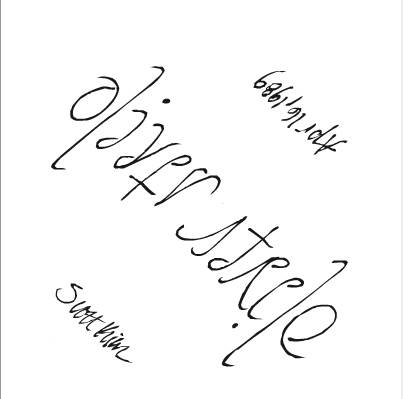 oliver steele
Apr 16, 1989
Scott Kim